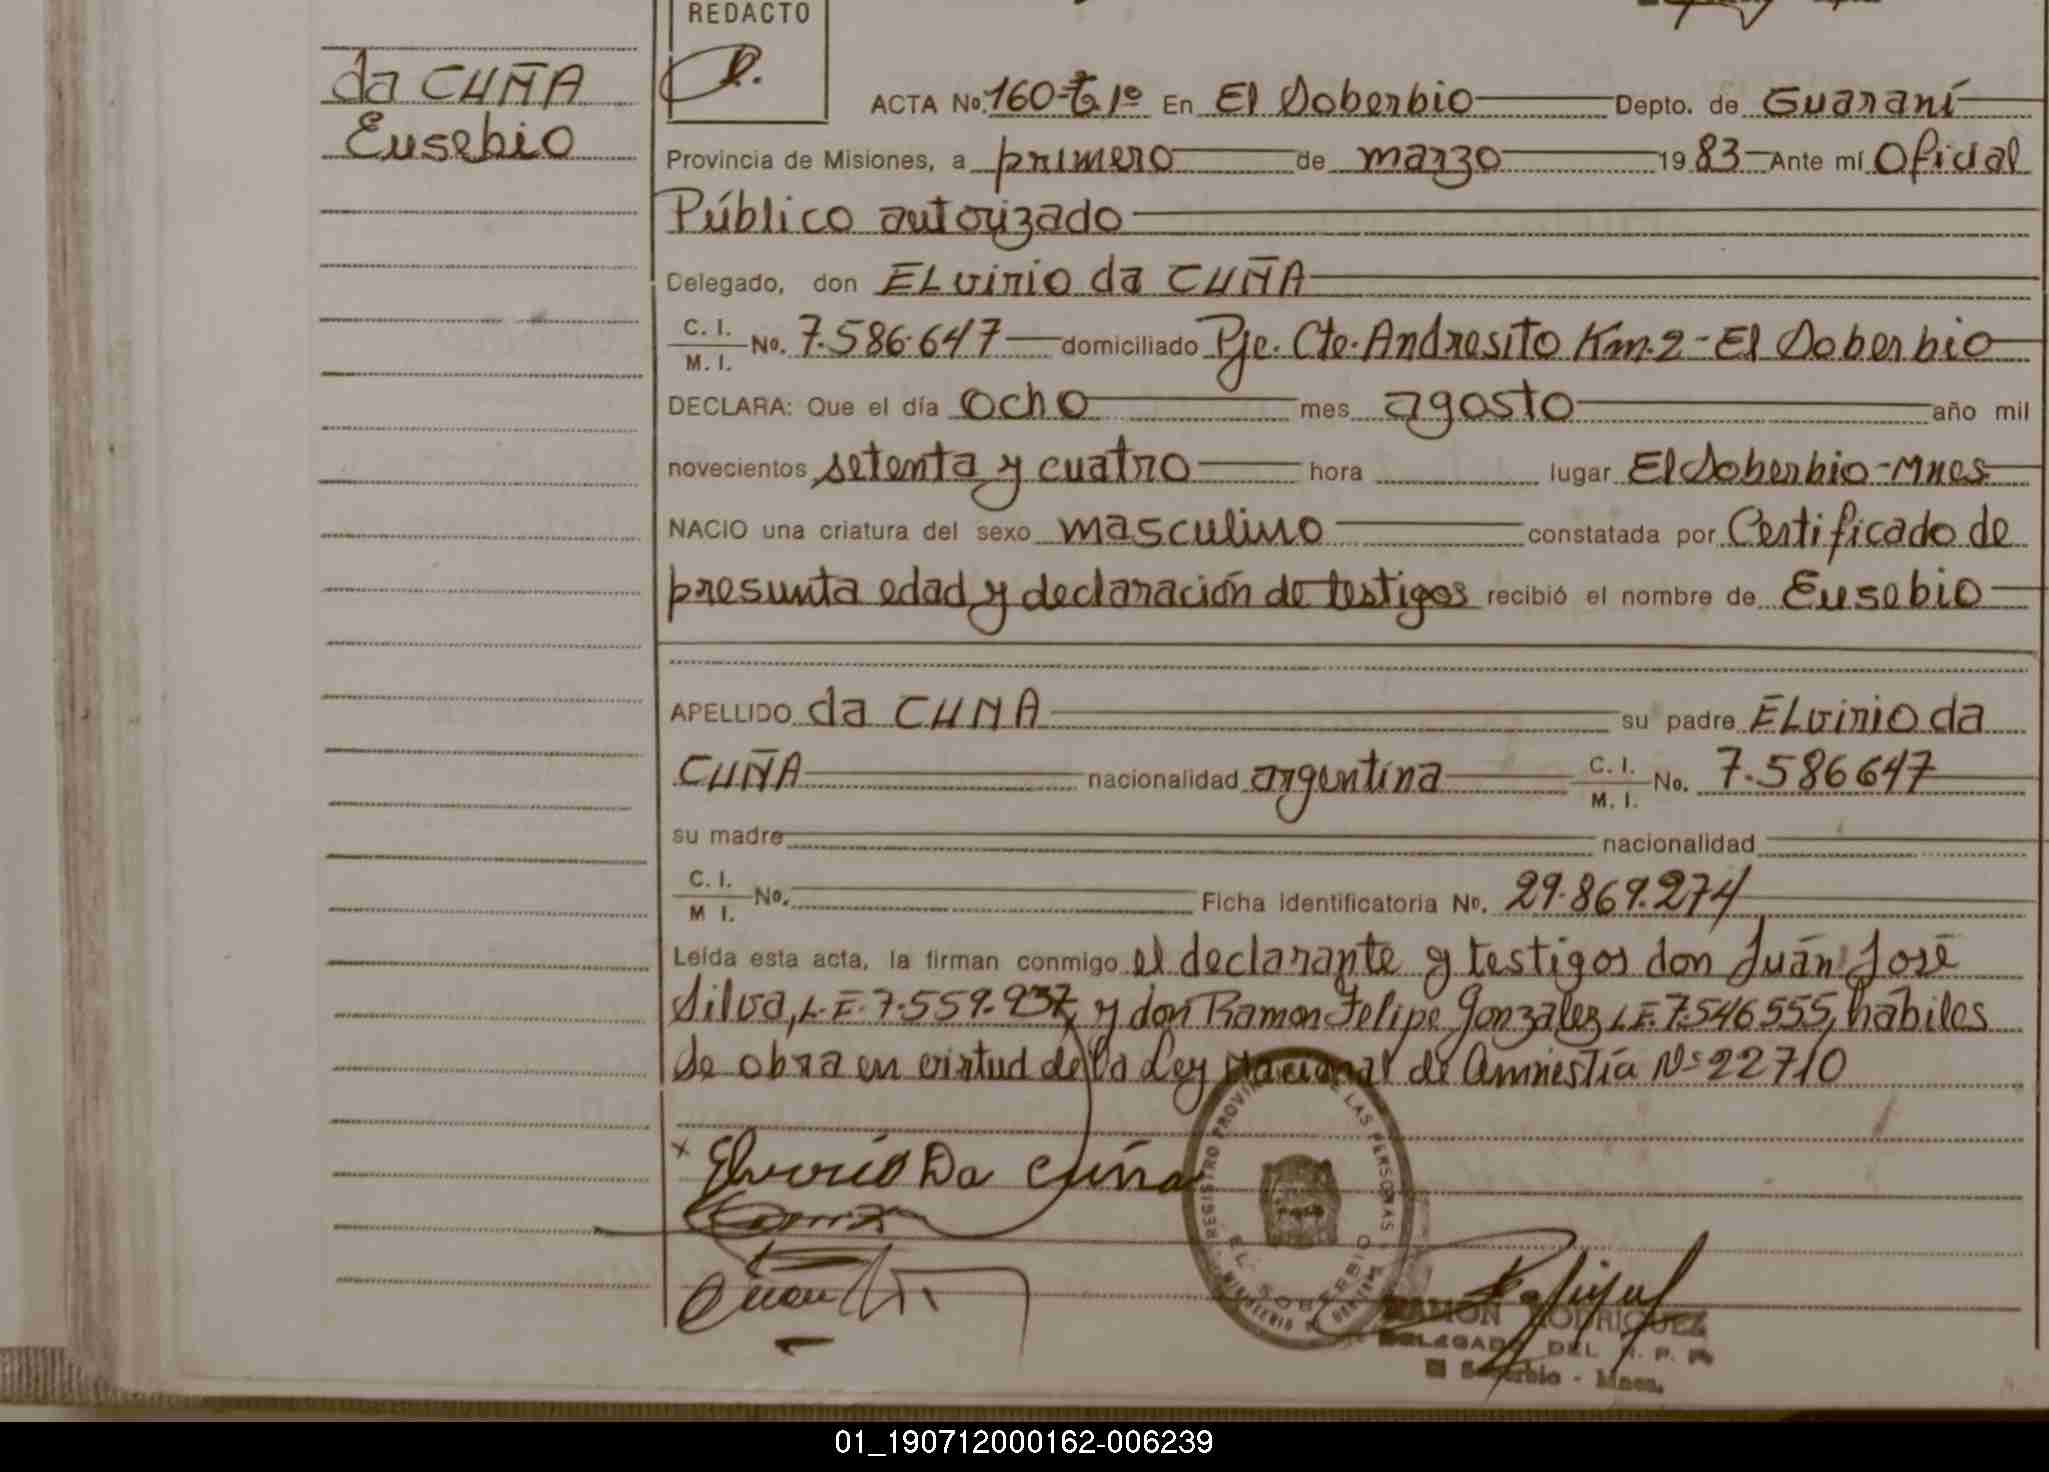 REDACTO
da CUÑA
Eusebio
ACTA No. 160-Tº 1º En El Soberbio Depto. de Guaraní
Provincia de Misiones, a primero de marzo 1983 Ante mí Oficial
Público autorizado
Delegado, don ELvirio da CUÑA
C. I.
M. I. No. 7.586.647 domiciliado Pje. Cte. Andresito Km. 2 - El Soberbio
DECLARA: Que el día ocho mes agosto año mil
novecientos setenta y cuatro hora lugar El Soberbio - Mnes
NACIO una criatura del sexo masculino constatada por Certificado de
presunta edad y declaración de testigos recibió el nombre de Eusebio
APELLIDO da CUÑA su padre ELvirio da
CUÑA nacionalidad argentina C. I.
M. I. No. 7.586647
su madre nacionalidad
C. I.
M I. No. Ficha identificatoria No. 29.869.274
Leída esta acta, la firman conmigo el declarante y testigos don Juán José
Silva, L.E. 7.559.937, y don Ramon Felipe Gonzalez L.E. 7.546555, hábiles
Se obra en virtud de la Ley Nacional de Amnistía Nº 22710
x Elvirio Da Cuña
REGISTRO PROVINCIAL DE LAS PERSONAS
EL SOBERBIO
RAMON RODRIGUEZ
DELEGADO DEL R. P. P.
El Soberbio - Mnes.
01_190712000162-006239